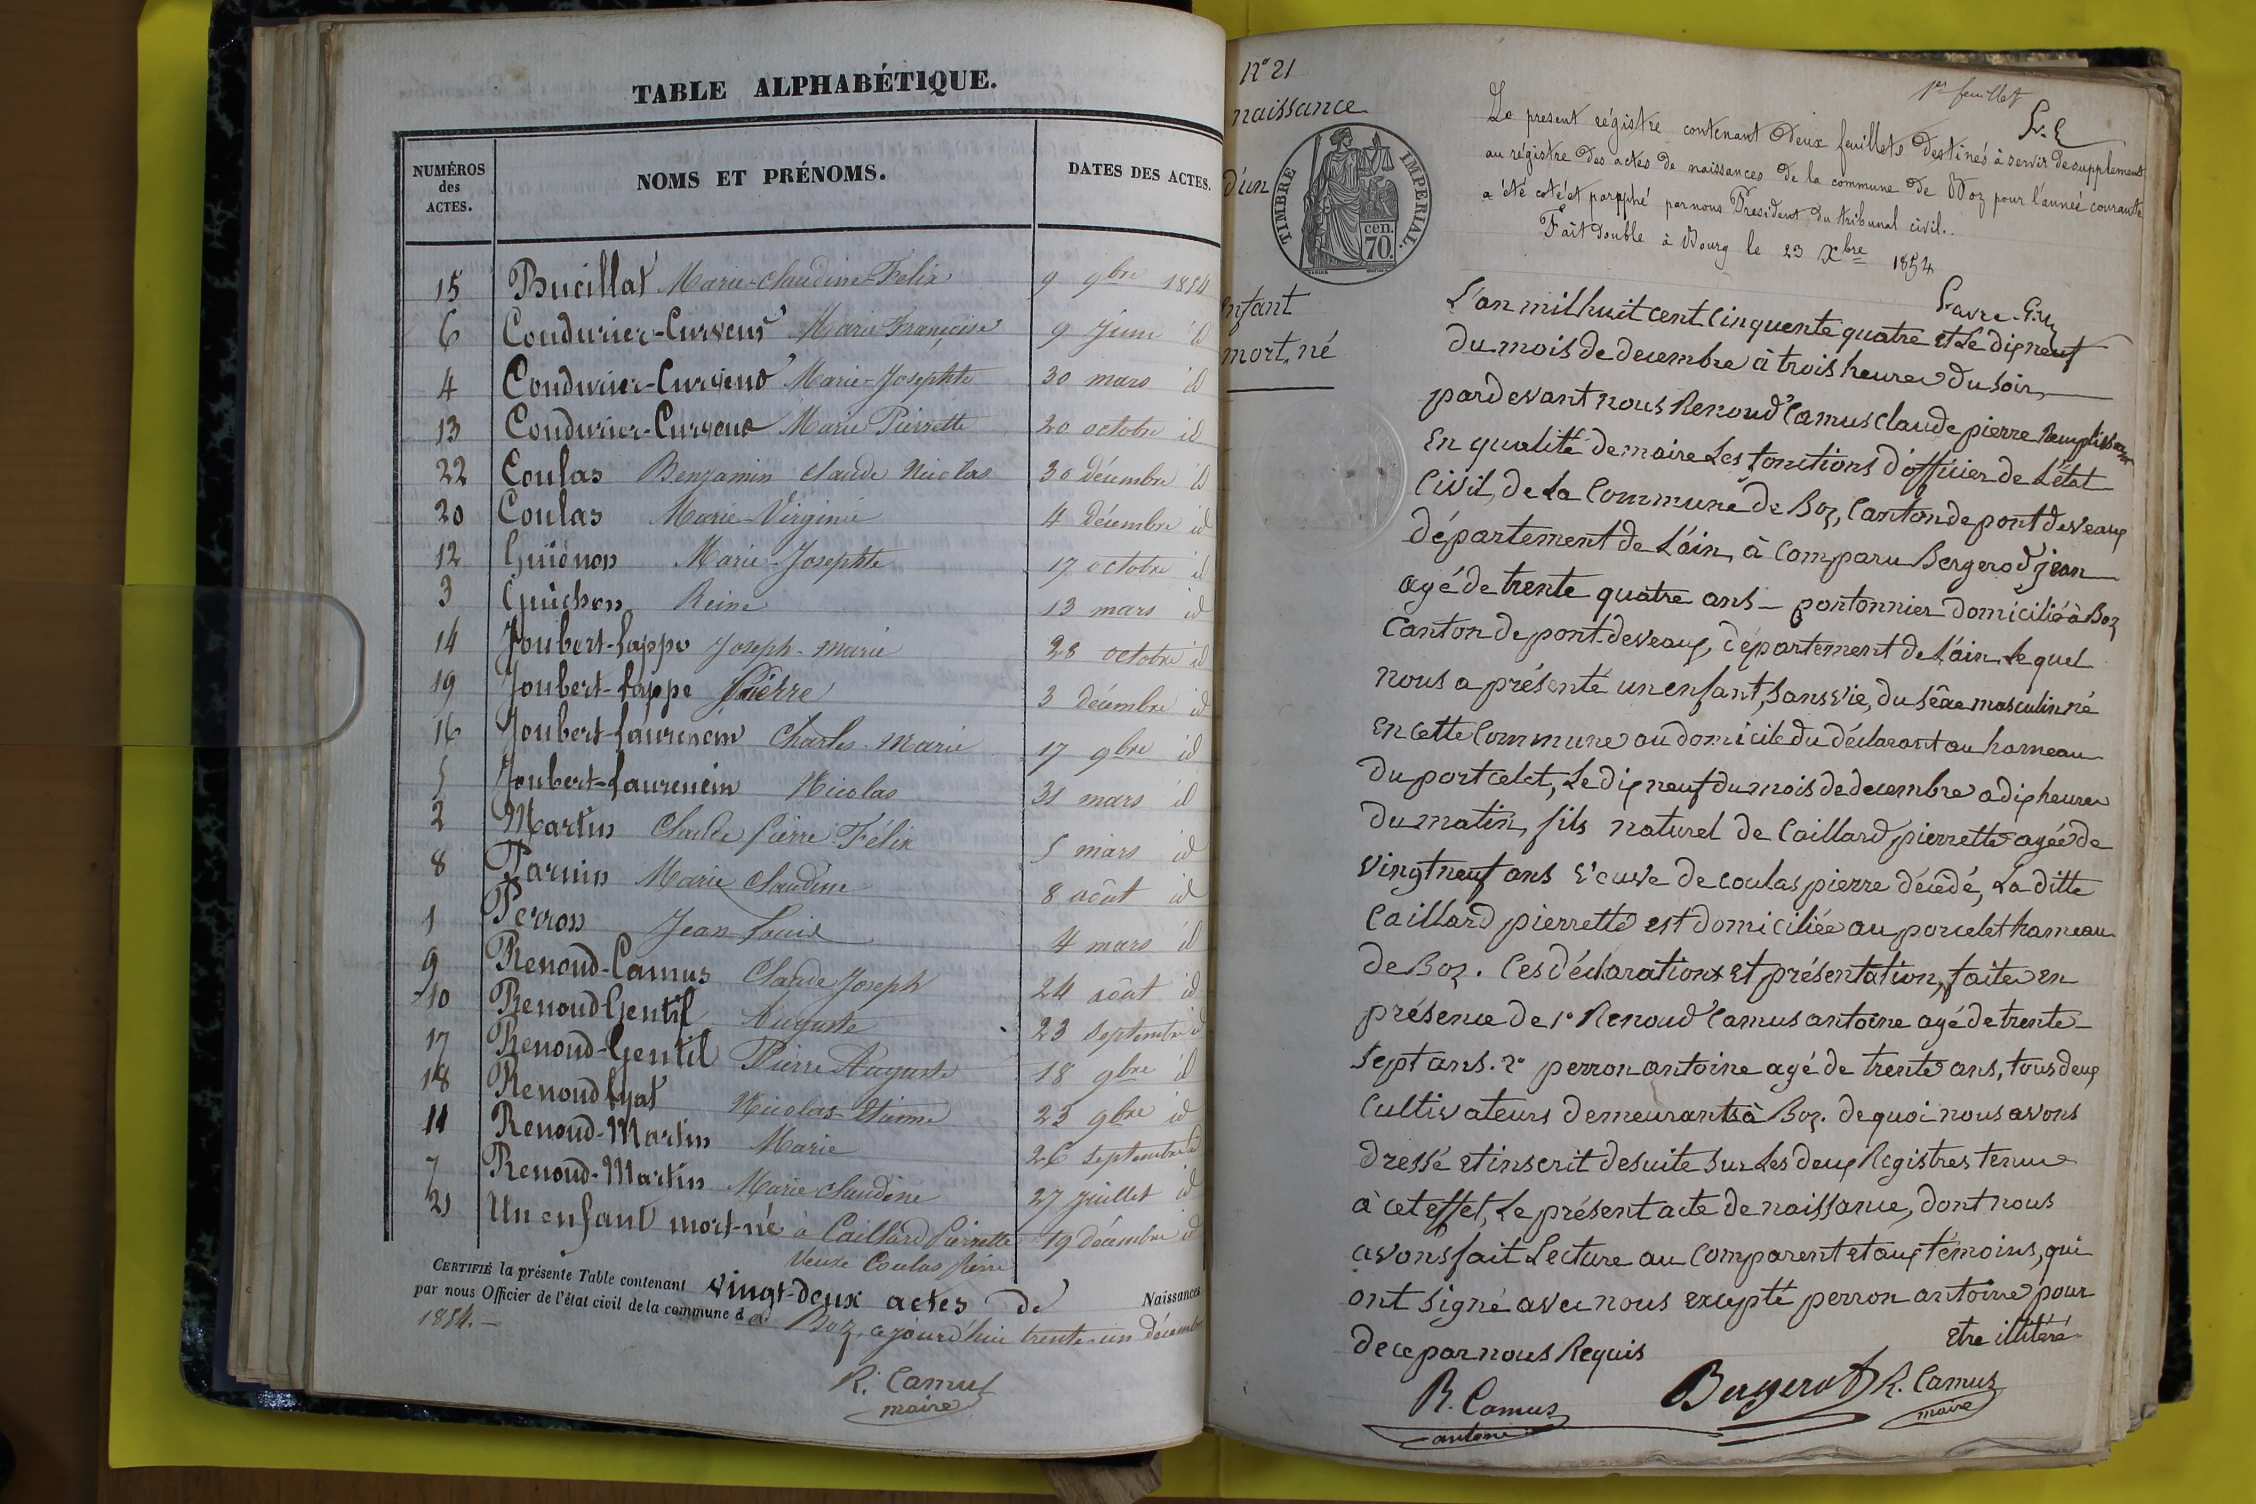 TABLE ALPHABÉTIQUE.
NUMÉROS des ACTES.
NOMS ET PRÉNOMS.
DATES DES ACTES.
15 Bucillat Marie-Claudine-Félix 9 9bre 1854
6 Condurier-Curveur Marie Françoise 9 Juin id
4 Condurier-Curveur Marie-Josephte 30 mars id
13 Condurier-Curveur Marie Pierrette 20 octobre id
22 Coulas Benjamin Claude Nicolas 30 décembre id
20 Coulas Marie-Virginie 4 décembre id
12 Guiénon Marie-Josephte 17 octobre id
3 Guichon Reine 13 mars id
14 Joubert-lappe Joseph-marie 28 octobre id
19 Joubert-lappe Pierre 3 décembre id
16 Joubert-laurencin Charles-Marie 17 9bre id
5 Joubert-laurencin Nicolas 31 mars id
2 Martin Claude Pierre Félix 5 mars id
8 Parnin Marie Claudine 8 août id
1 Perron Jean-Louis 4 mars id
9 Renoud-Camus Claude Joseph 24 août id
10 Renoud Gentil Auguste 23 septembre id
17 Renoud-Gentil Pierre Auguste 18 9bre id
18 Renoud lyat Nicolas-Etienne 23 9bre id
11 Renoud-Martin Marie 26 septembre id
7 Renoud-Martin Marie Claudine 27 Juillet id
21 Un enfant mort-né à Caillard Pierrette 19 décembre id
Veuve Coulas Pierre
CERTIFIÉ la présente Table contenant vingt-deux actes de Naissances
par nous Officier de l'état civil de la commune d e Boz, ce jourd'hui trente-un décembre
1854.-
R. Camus
maire
N° 21
naissance
d'un
enfant
mort,né
TIMBRE IMPERIAL.
70.
cen.
1er feuillet
Le present régistre contenant deux feuillets destinés à servir de supplement
au régistre des actes de naissances de la commune de Boz pour l'année courante
a été coté et parpphé par nous President du tribunal civil.
Fait double à Bourg le 23 Xbre 1854
L'an mil huit cent cinquente quatre et Le dix neuf
du mois de decembre à trois heures du soir
pardevant nous Renoud Camus Claude pierre Remplissant
en qualité de maire Les fonctions d'officier de L'état
Civil, de La Commune de Boz, Canton de pont deveaux
département de L'ain, à Comparu Bergerod jean
agé de trente quatre ans – pontonnier domicilié à Boz
Canton de pont-deveaux, département de L'ain. Le quel
nous a présenté un enfant, sans vie, du sêxe masculin né
en cette Commune au domicile du déclarant au hameau
du port celet, Le dix neuf du mois de decembre a dix heures
du matin, fils naturel de Caillard pierrette agée de
vingt neuf ans veuve de coulas pierre décédé, La ditte
Caillard pierrette est domiciliée au porcelet hameau
de Boz. Ces déclarations et présentation, faite en
présence de 1° Renoud Camus antoine agé de trente
sept ans. 2° perron antoine agé de trente ans, tous deux
Cultivateurs demeurants à Boz. de quoi nous avons
dressé et inscrit desuite sur Les deux Registres tenus
à cet effet, Le présent acte de naissance, dont nous
avons fait Lecture au Comparent et aux témoins, qui
ont signé avec nous excepté perron antoine pour
etre illitéré
de ce par nous Requis
R. Camus
antoine
Bergerod
R. Camus
maire